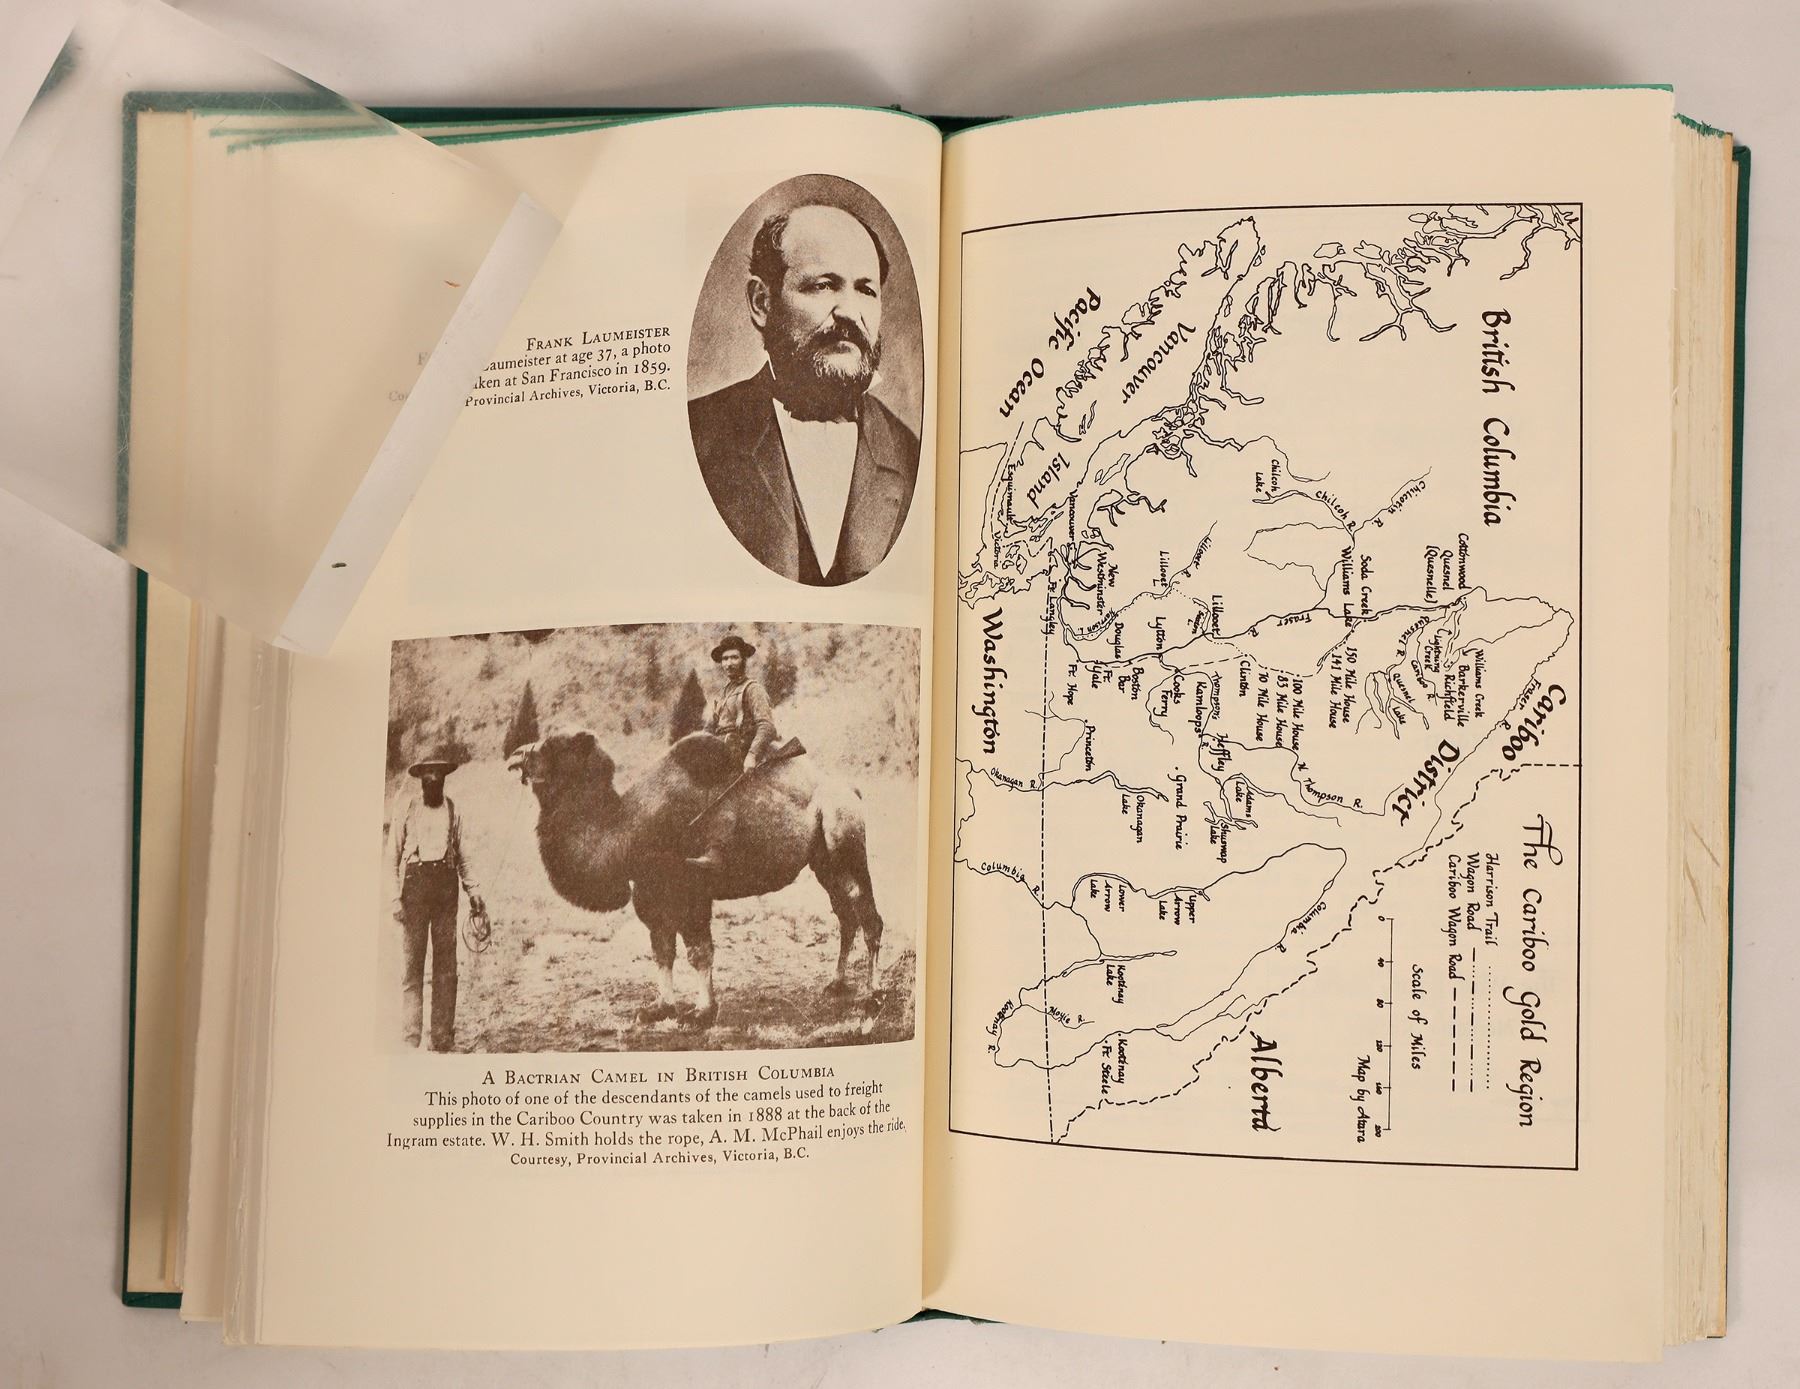 FRANK LAUMEISTER
Laumeister at age 37, a photo
taken at San Francisco in 1859.
Provincial Archives, Victoria, B.C.
A BACTRIAN CAMEL IN BRITISH COLUMBIA
This photo of one of the descendants of the camels used to freight
supplies in the Cariboo Country was taken in 1888 at the back of the
Ingram estate. W. H. Smith holds the rope, A. M. McPhail enjoys the ride.
Courtesy, Provincial Archives, Victoria, B.C.
The Cariboo Gold Region
Harrison Trail
Wagon Road
Cariboo Wagon Road
Scale of Miles
0 40 80 120 160 200
Map by Atara
British Columbia
Cariboo
District
Alberta
Washington
Pacific Ocean
Vancouver
Island
Esquimault
Victoria
Vancouver
New
Westminster
Ft. Langley
Douglas
Ft.
Yale
Ft. Hope
Boston
Bar
Lytton
Cooks
Ferry
Lillooet
Lillooet
L.
Lillooet R.
Clinton
70 Mile House
83 Mile House
100 Mile House
141 Mile House
150 Mile House
Williams Lake
Soda Creek
Cottonwood
Quesnel
(Quesnelle)
Williams Creek
Barkerville
Richfield
Lightning
Creek
Cariboo R.
Quesnel R.
Quesnel
Lake
Fraser R.
Fraser R.
Chilcoh
Lake
Chilcoh R.
Chilcotin R.
Thompson R.
Kamloops
Heffley
N. Thompson R.
Adams
Lake
Shuswap
Lake
Grand Prairie
Princeton
Okanagan
Lake
Okanagan R.
Columbia R.
Columbia R.
Upper
Arrow
Lake
Lower
Arrow
Lake
Kootnay
Lake
Kootenay R.
Moyie R.
Kootnay
Ft. Steele